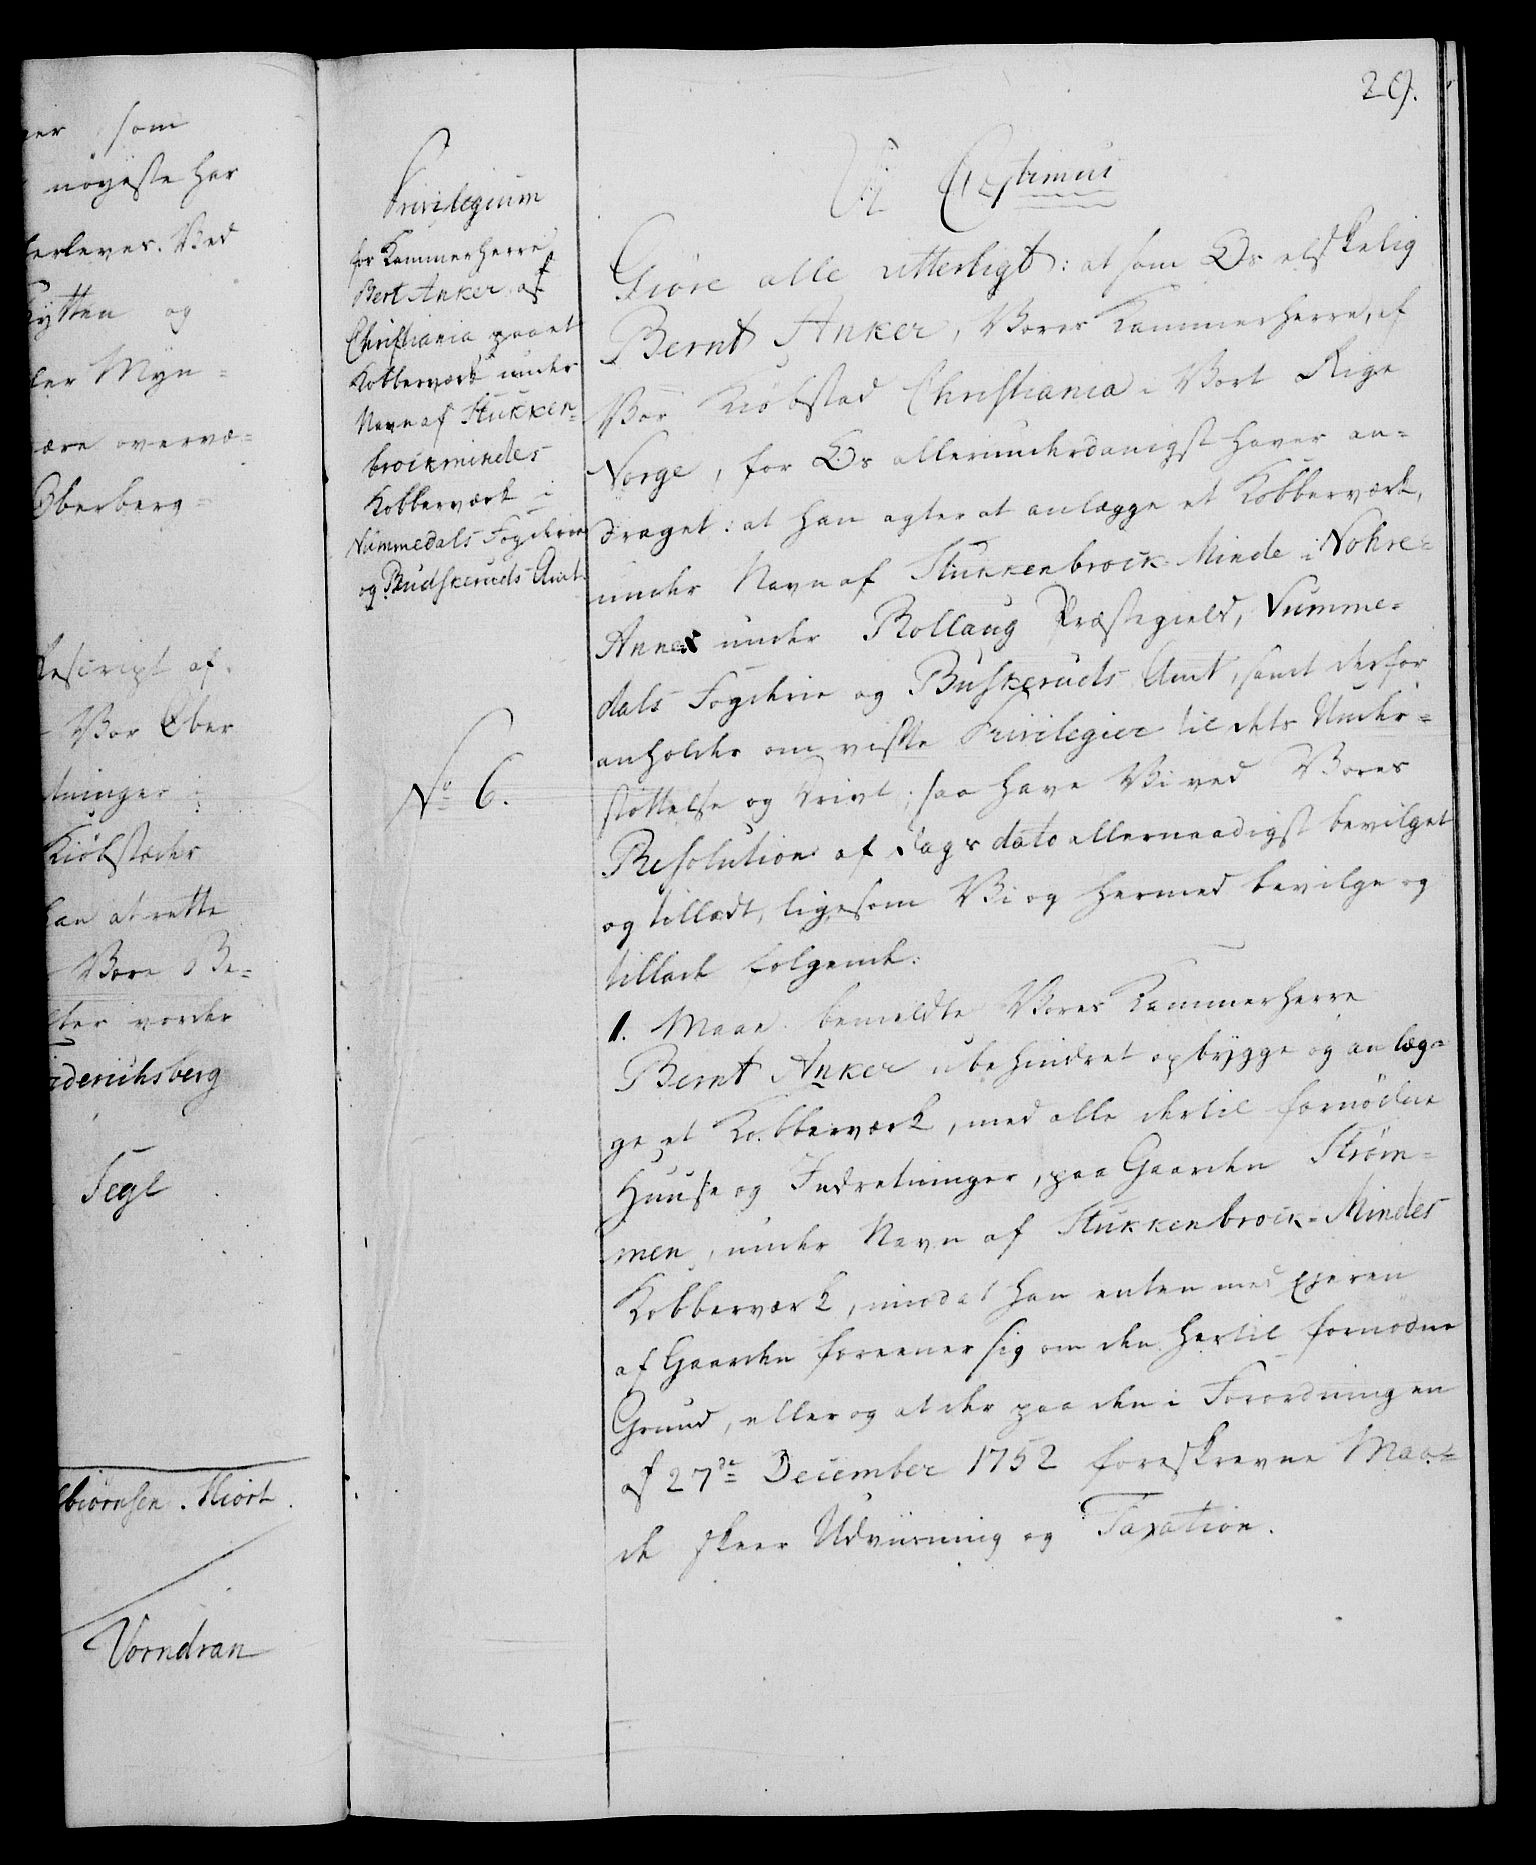 ger som
nøyeste har
erleves. Ved
Hytten og
ler Myn=
ære overvæ=
Oberberg=
Rescript af
Vor Ober
tninger i
Kiøbstæder
han at rette
Vore Be=
ter vorder
iderichsberg
Segl
lbiørnsen. Hiort.
Vorndran
29.
Privilegium
for Kammerherre
Bert Anker af
Christiania paa et
Kobberværk under
Navn af Stukken=
brockmindes
Kobberværk i
Nummedals Fogderie
og Budskeruds Amt.
No 6.
Vi Christian
Giøre alle vitterligt: at som Os elskelig
Bernt Anker, Vores Kammerherre, af
Vor Kiøbstad Christiania i Vort Rige
Norge, for Os allerunderdanigst haver an=
draget: at han agter at anlægge et Kobberværk,
under Navn af Stukkenbrock-Minde i Nohre=
Annex under Rollaug Præstegield, Numme=
dals Fogderie og Buskeruds Amt, samt derfor
anholder om visse Privilegier til dets Under=
støttelse og Drivt; saa have Vi ved Vores
Resolution af Dags dato allernaadigst bevilget
og tilladt, ligesom Vi og hermed bevilge og
tillade følgende:
1. Maae bemeldte Vores Kammerherre
Bernt Anker ubehindret opbygge og anlæg=
ge et Kobberværk, med alle dertil fornødne
Huuse og Indretninger, paa Gaarden Strøm=
men, under Navn af Stukkenbrock-Mindes
Kobberværk, imod at han enten med Ejeren
af Gaarden foreener sig om den hertil fornødne
Grund, eller og at der paa den i Forordningen
af 27de December 1752 foreskrevne Maa=
de skeer Udviisning og Taxation.